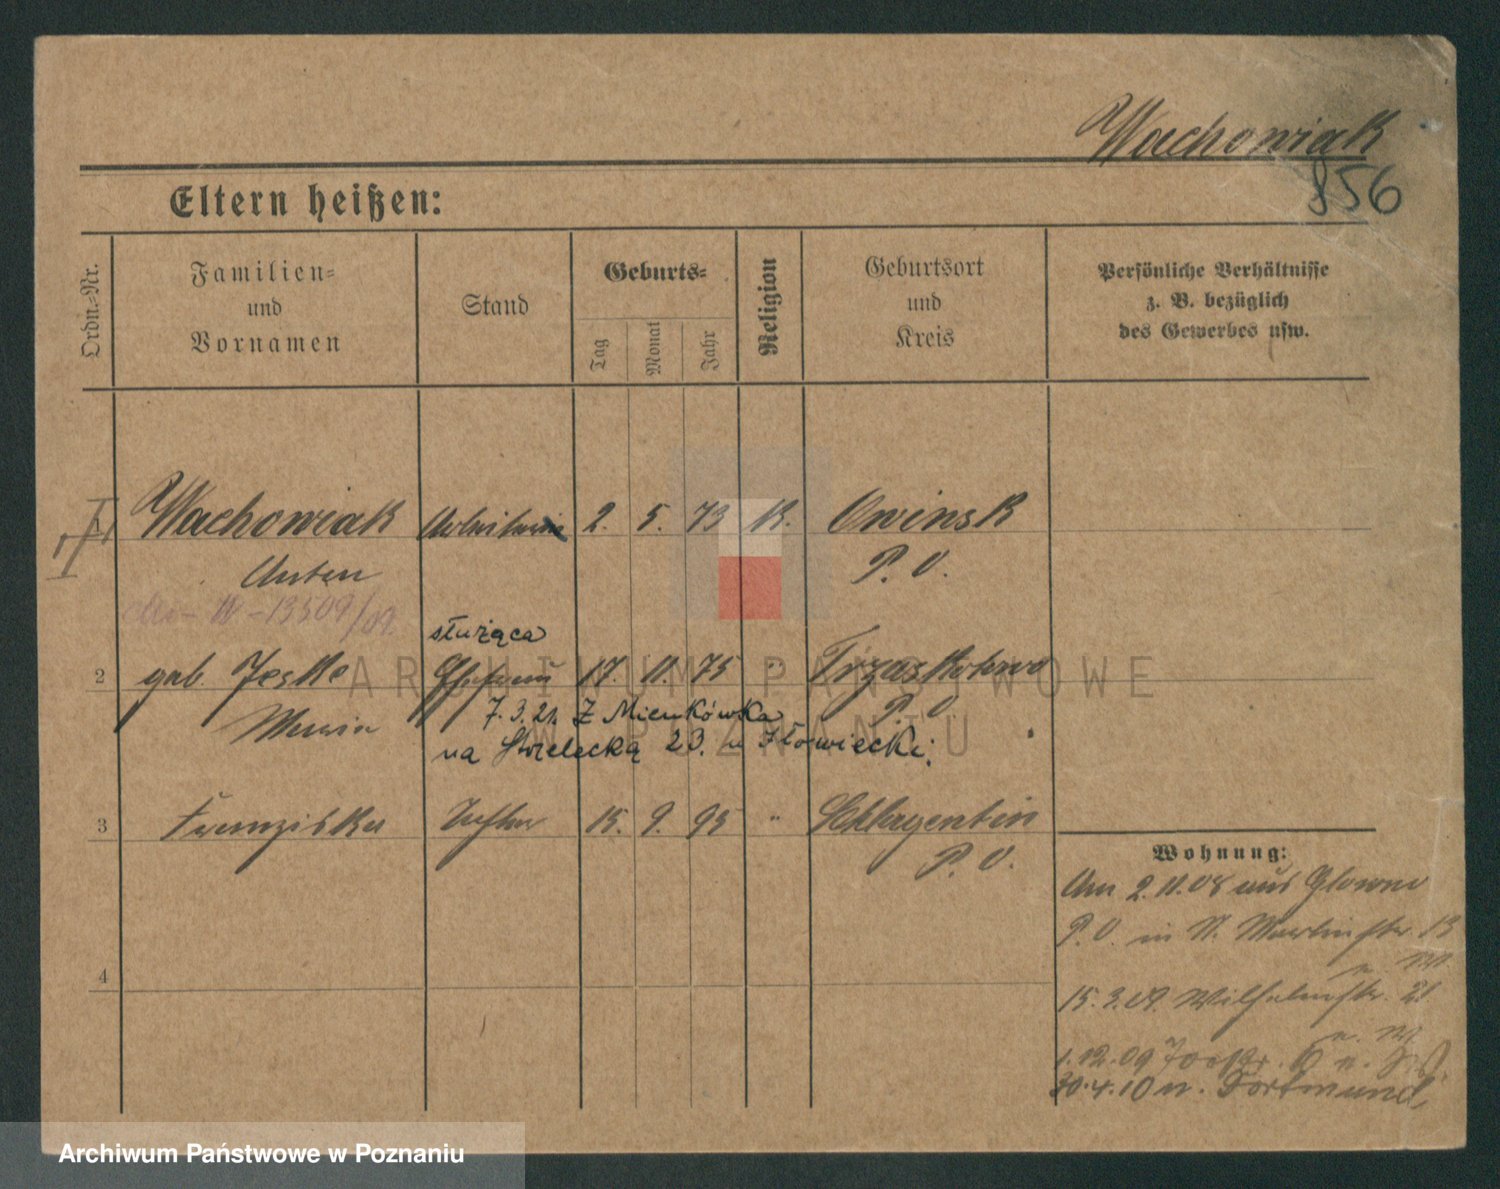 Wachowiak
856
Eltern heißen:
Ordn.-Nr.
Familien-
und
Vornamen
Stand
Geburts-
Tag
Monat
Jahr
Religion
Geburtsort
und
Kreis
Persönliche Verhältnisse
z. B. bezüglich
des Gewerbes usw.
Wachowiak 2. 5. 73 K. Owinsk
Anton P. O.
13509/09.
służąca
2 geb. Jeske Ehefrau 17. 11. 75 " Trzaskowo
Maria P. O.
7.3.21. Z Mienkówka
na Strzelecką 23. u Złowiecki.
3 Franziska Tochter 15. 9. 95 " Schlagentin
P. O.
4
Wohnung:
Am 2.11.08 aus Glowno
P. O. in St. Martinstr. 13
15.3.09. Wilhelmstr. 21
1.12.09
30.4.10 n. Dortmund
ARCHIWUM PAŃSTWOWE
W POZNANIU
Archiwum Państwowe w Poznaniu